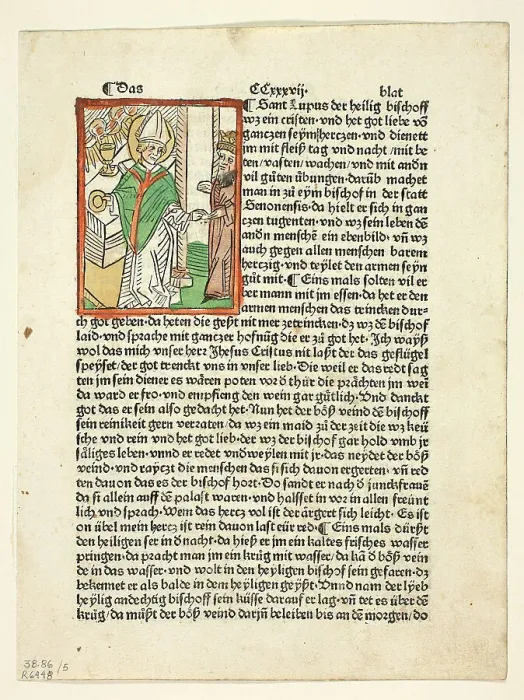 ¶ Das CCxxxvij. blat
¶ Sant Lupus der heilig bischoff
wz ein cristen·vnd het got liebe võ
ganczen seym herczen·vnd dienett
jm mit fleiß tag vnd nacht/mit be
ten/vasten/wachen/vnd mit andn
vil gůten übungen·darüb machet
man in zů eym bischof in der statt
Senonensis·da hielt er sich in gan
czen tugenten·vnd wz sein leben dē
andn menschē ein ebenbild·vñ wz
auch gegen allen menschen barem
herczig·vnd teylet den armen seyn
gůt mit·¶ Eins mals solten vil er
ber mann mit jm essen·da het er den
armen menschen das trincken dur-
ch got geben·da heten die gest nit mer ze trincken·dz wz dē bischof
laid·vnd sprache mit ganczer hofnūg die er zů got het·Ich wayß
wol das mich vnser herr Jhesus Cristus nit laßt der das geflügel
speyset/der got trenckt vns in vnser lieb·Die weil er das redt sag
ten jm sein diener es wären poten vor d thür die prächten jm wein
da ward er fro·vnd empfieng den wein gar gütlich·Vnd danckt
got das er sein also gedacht het·Nun het der böß veind dē bischoff
sein reinikeit gern verraten/da wz ein maid zů der zeit die wz keü
sche vnd rein vnd het got lieb·der wz der bischof gar hold vmb jr
säliges leben·vnnd er redet vndweylen mit jr·das neydet der böß
veind·vnd rayczt die menschen das si sich dauon ergerten·vñ red
ten dauon das es der bischof hort·Do sandt er nach d junckfrauē
da si allein auff dē palast waren·vnd halsset in vor in allen freünt
lich vnd sprach·Wem das hercz vol ist der ärgert sich leicht·Es ist
on übel mein hercz ist rein dauon last eür red·¶ Eins mals dürst
den heiligen ser in d nacht·da hieß er jm ein kaltes frisches wasser
pringen·da pracht man jm ein krůg mit wasser/da kā d böß vein
de in das wasser·vnd wolt in den heyligen bischof sein gefaren·dz
bekennet er als balde in dem heyligen geyst·Vnnd nam der lyeb
heylig andechtig bischoff sein küsse darauf er lag·vñ tet es über dē
krůg/da můst der böß veind darjñ beleiben bis an dē morgen/do
38.86 /5
R6448